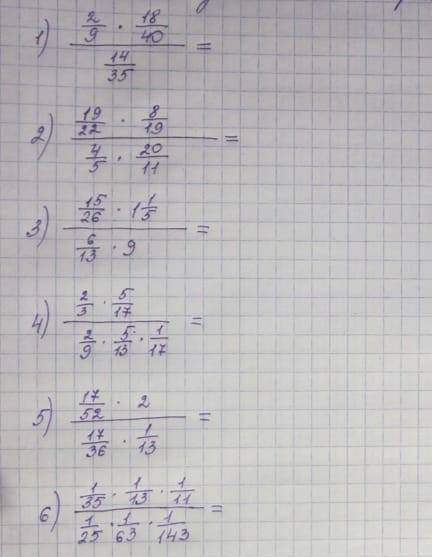 1) (2/9 · 18/40) / (14/35) =
2) (19/22 · 8/19) / (4/5 · 20/11) =
3) (15/26 · 1 1/5) / (6/13 · 9) =
4) (2/3 · 5/17) / (2/9 · 5/13 · 1/17) =
5) (17/52 · 2) / (17/36 · 1/13) =
6) (1/35 · 1/13 · 1/11) / (1/25 · 1/63 · 1/143) =